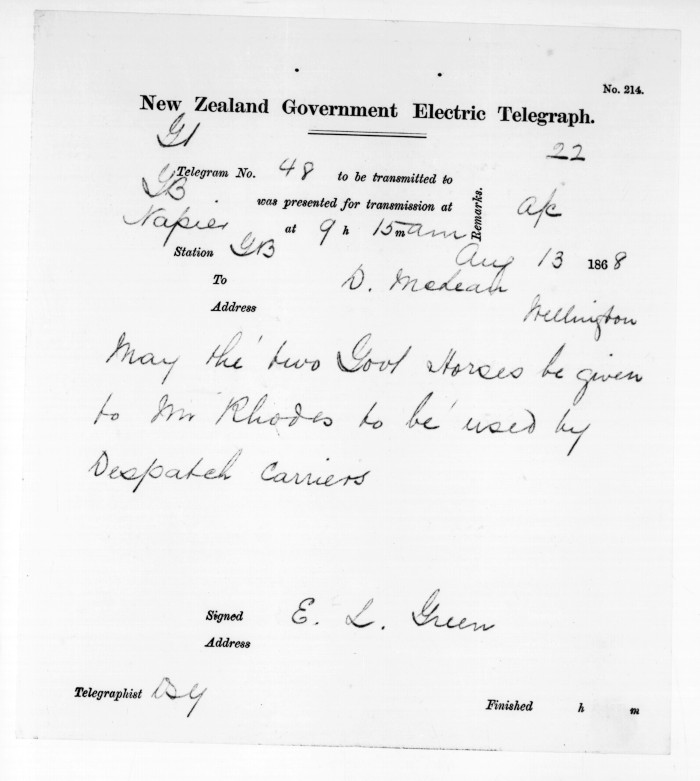 No. 214.
New Zealand Government Electric Telegraph.
G1
22
Telegram No. 48 to be transmitted to
GB
was presented for transmission at
Remarks.
a/c
Napier at 9 h 15 m am
Station GB
Aug 13 1868
To D. McLean
Address Wellington
May the two Govt Horses be given
to Mr Rhodes to be used by
Despatch Carriers
Signed E. L. Green
Address
Telegraphist
Finished h m